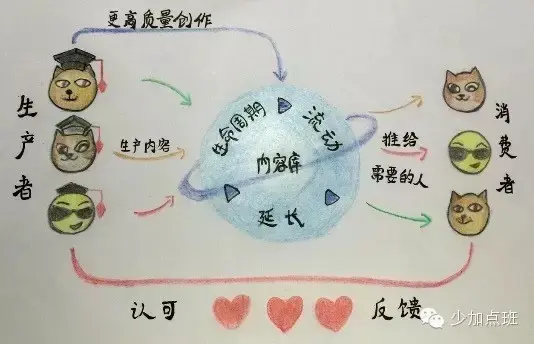 更高质量创作
生产者
生产内容
生命周期
流动
内容库
延长
推给
需要的人
消费者
认可
反馈
少加点班